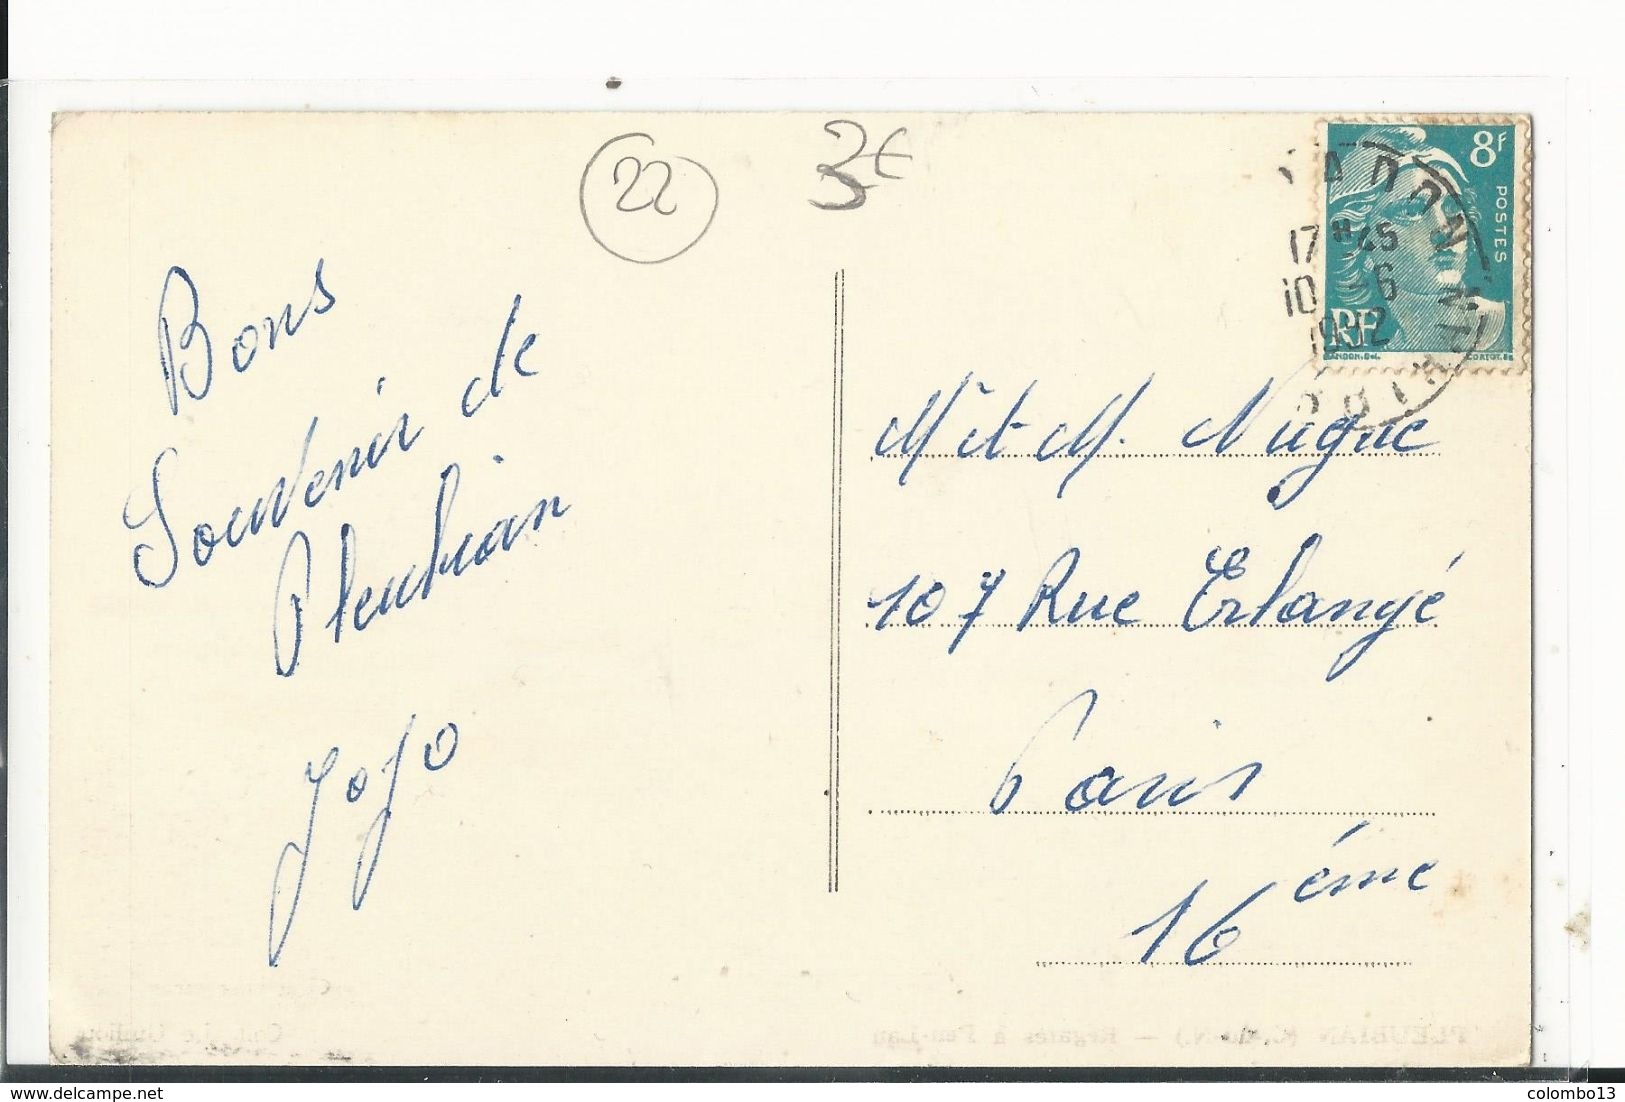 22
3€
8f
POSTES
RF
17H45
10-6
1952
Bons
Souvenir de
Pleubian
Jojo
Mr et M. Nugue
107 Rue Erlangé
Paris
16ème
PLEUBIAN (C.-du-N.) — Régates à Pen-Lan
delcampe.net
colombo13